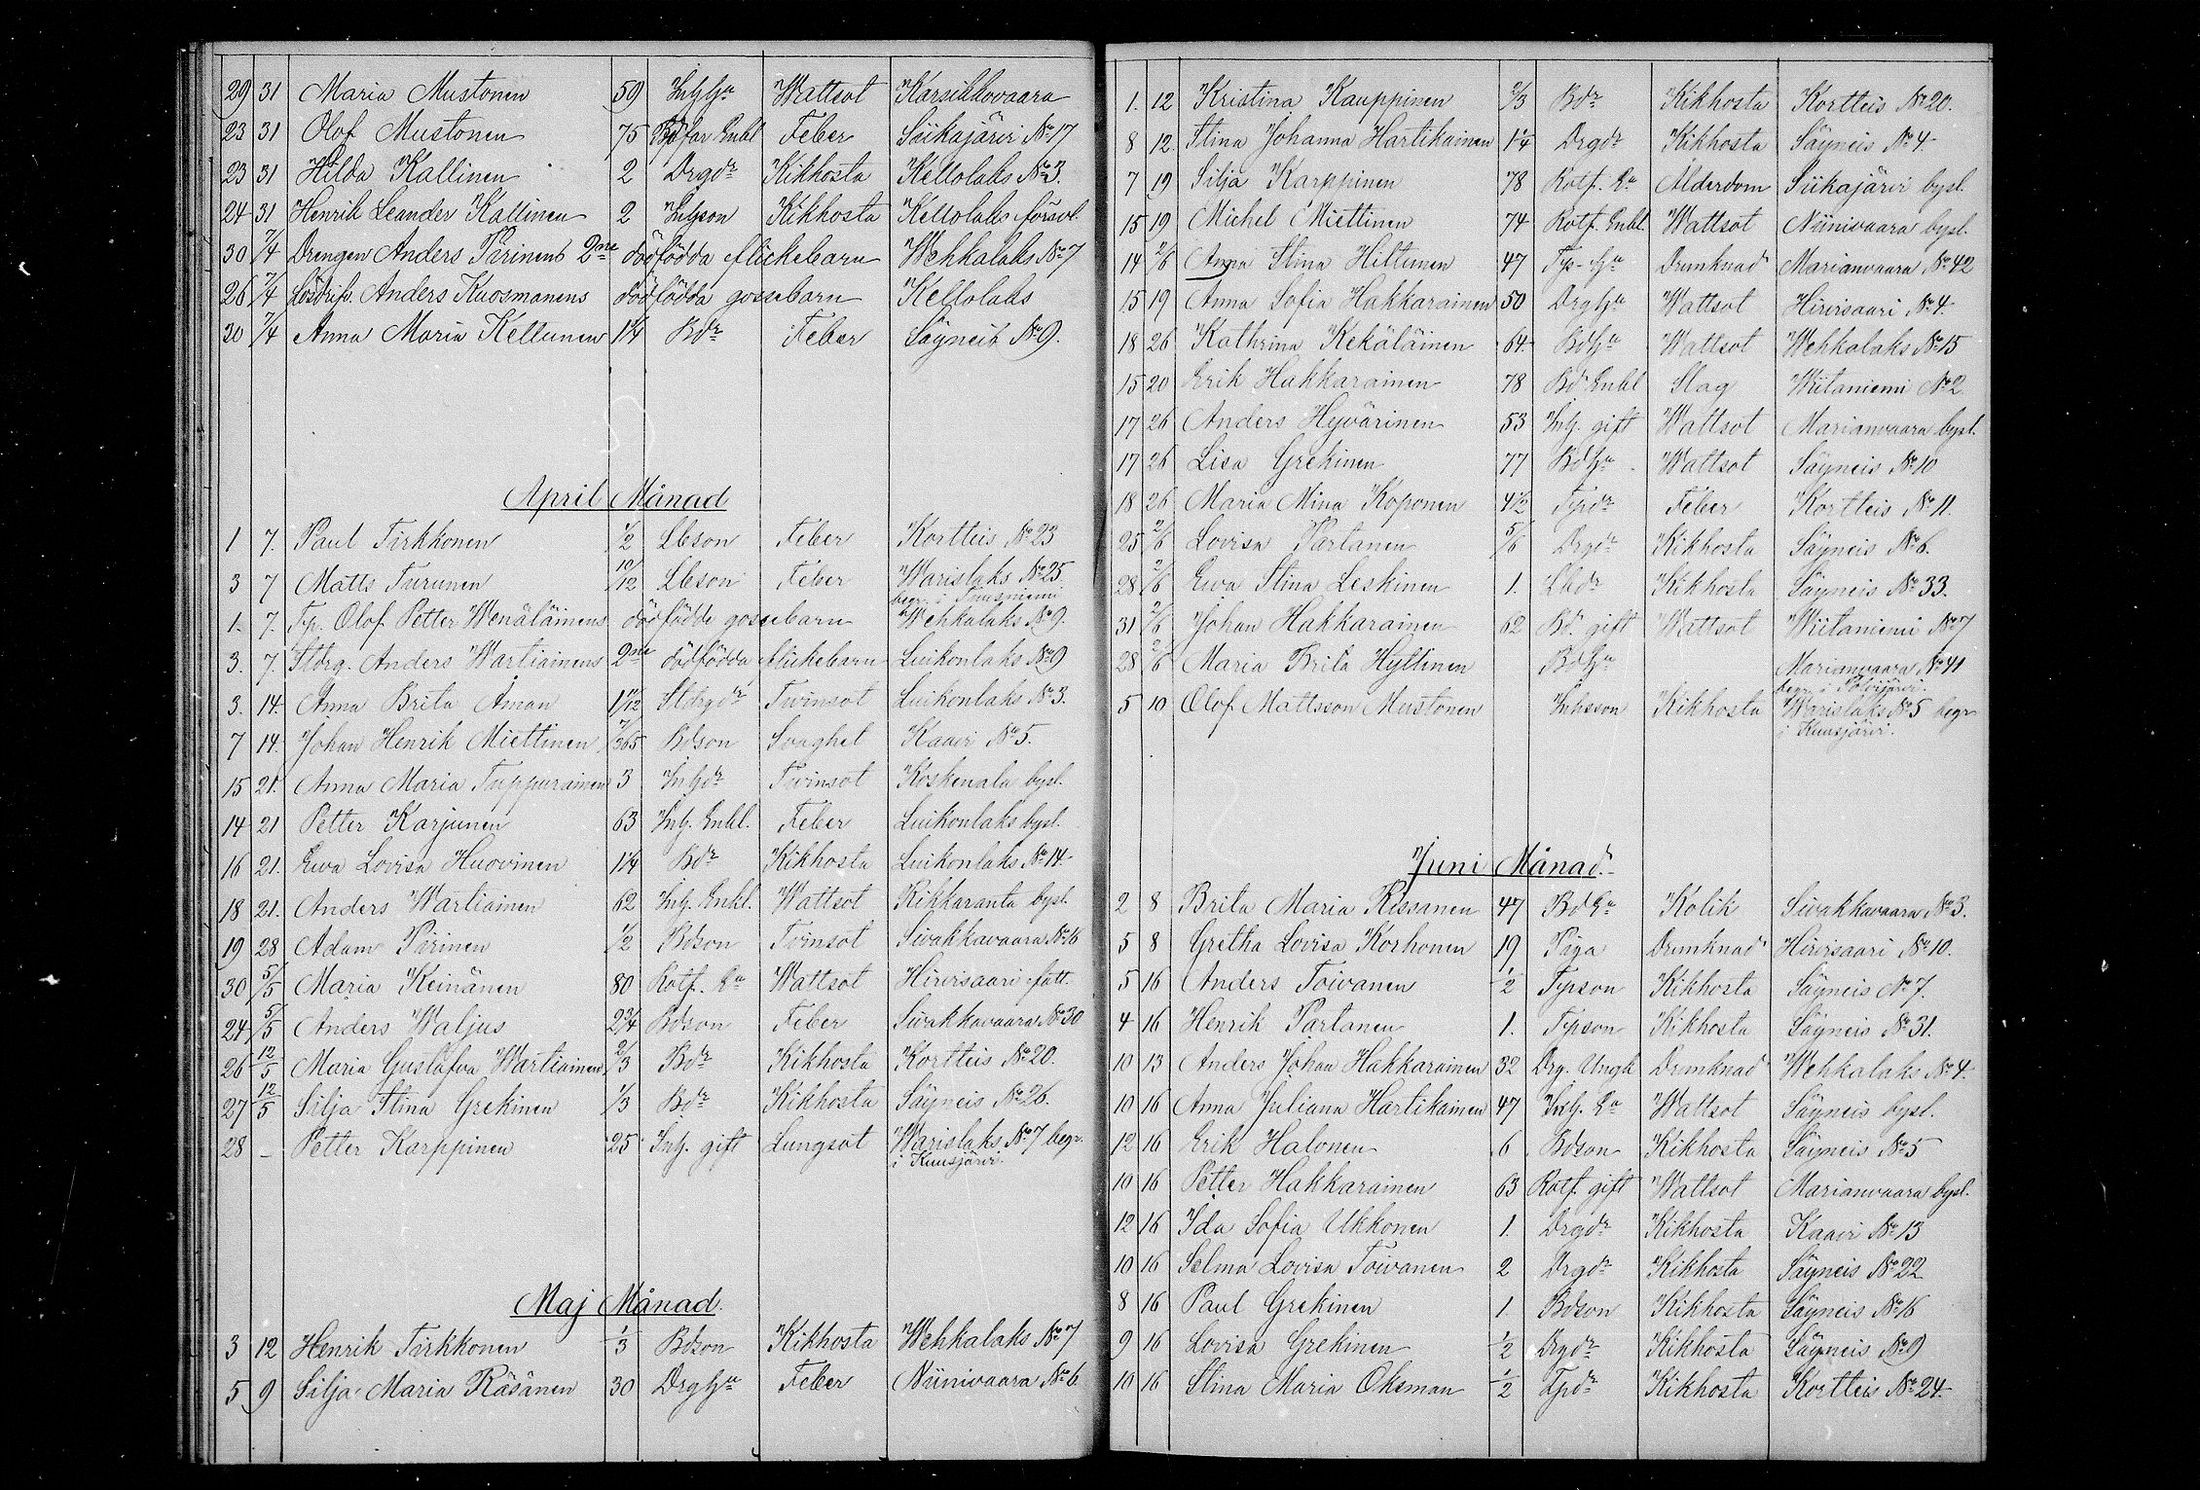 29 31 Maria Mustonen 59 InhHu Wattsot Karsikkovaara
23 31 Olof Mustonen 75 Bdfar Enkl Feber Siikajärvi No 17
23 31 Hilda Kallinen 2 Drgdr Kikhosta Kellolaks No 3.
24 31 Henrik Leander Kallinen 2 Inhson Kikhosta Kellolaks förså.
30 7/4 Drengen Anders Pärinens 2ne dödfödda flickebarn Wehkalaks No 7
26 7/4 Lösdrifv. Anders Kuosmanens dödfödda gossebarn Kellolaks
30 7/4 Anna Maria Keltunen 1 1/4 Bdr Feber Säyneis No 9.
April Månad
1 7. Paul Tirkkonen 1/2 Lbson Feber Kortteis No 23
3 7 Matts Turunen 10/12 Lbson Feber Warislaks No 25.
begr. i Tuusniemi
1. 7. Tp. Olof Petter Wenäläinens dödfödde gossebarn Wehkalaks No 9.
3. 7. Stdrg. Anders Wartiainens 2ne dödfödda flickebarn Luikonlaks No 9
3. 14. Anna Brita Åman 1 11/12 Stdrgdr Tvinsot Luikonlaks No 3.
7 14. Johan Henrik Miettinen 7/365 Bdson Svaghet Kaavi No 5.
15 21. Anna Maria Tuppurainen 3 Inhdr Tvinsot Koskenala bysl.
14 21 Petter Karjunen 63 Inh. Enkl. Feber Luikonlaks bysl.
16 21. Ewa Lovisa Huovinen 1 1/4 Bdr Kikhosta Luikonlaks No 14.
18 21. Anders Wartiainen 62 Inh. Enkl. Wattsot Rikkaranta bysl.
19 28 Adam Pirinen 1/2 Bdson Tvinsot Sivakkavaara No 16
30 5/5 Maria Keinänen 80 Rotf. Ea Wattsot Hirvisaari fatt.
24 5/5 Anders Waljus 2 3/4 Bdson Feber Sivakkavaara No 30
26 12/5 Maria Gustafva Wartiainen 2/3 Bdr Kikhosta Kortteis No 20.
27 12/5 Silja Stina Grekinen 1/3 Bdr Kikhosta Säyneis No 26.
28 – Petter Karppinen 25 Inh. gift Lungsot Warislaks No 7 begr.
i Kuusjärvi.
Maj Månad.
3 12 Henrik Tirkkonen 1/3 Bdson Kikhosta Wehkalaks No 7
5 9 Silja Maria Räsänen 30 DrgHu Feber Niinivaara No 6
1. 12 Kristina Kauppinen 2/3 Bdr Kikhosta Kortteis No 20.
8 12. Stina Johanna Hartikainen 1 1/4 Drgdr Kikhosta Säyneis No 4.
7 19 Silja Karppinen 78 Rotf. Ea Ålderdom Siikajärvi bysl.
15 19 Michel Miettinen 74 Rotf. Enkl. Wattsot Niinivaara bysl.
14 2/6 Anna Stina Hiltunen 47 Tp-Hu Drunknad Marianvaara No 42
15 19 Anna Sofia Hakkarainen 50 DrgHu Wattsot Hirvisaari No 4.
18 26 Kathrina Kekäläinen 64. BdHu Wattsot Wehkalaks No 15
15 20 Erik Hakkarainen 78 Bd. Enkl Slag Wiitaniemi No 2
17 26 Anders Hyvärinen 53 Inh. gift Wattsot Marianvaara bysl.
17 26 Lisa Grekinen 77 BdHu Wattsot Säyneis No 10
18 26 Maria Mina Koponen 4 1/2 Tpdr Feber Kortteis No 11.
25 2/6 Lovisa Partanen 5/6 Drgdr Kikhosta Säyneis No 6.
28 2/6 Ewa Stina Leskinen 1. Lbdr Kikhosta Säyneis No 33.
31 2/6 Johan Hakkarainen 62 Bd. gift Wattsot Wiitaniemi No 7
28 2/6 Maria Brita Hyttinen BdHu Marianvaara No 41
begr. i Polvijärvi.
5 10 Olof Mattsson Mustonen Inhsson Kikhosta Warislaks No 5 begr
i Kuusjärvi.
Juni Månad.
2 8 Brita Maria Rissanen 47 BdEa Kolik Sivakkavaara No 3.
5 8 Gretha Lovisa Korhonen 19 Piga Drunknad Hirvisaari No 10.
5 16 Anders Toivanen 1/2 Tpson Kikhosta Säyneis No 7.
4 16 Henrik Partanen 1. Tpson Kikhosta Säyneis No 31.
10 13 Anders Johan Hakkarainen 32 Drg. Ungk Drunknad Wehkalaks No 4.
10 16 Anna Juliana Hartikainen 47 Inh. Ea Wattsot Säyneis bysl.
12 16 Erik Halonen 6 Bdson Kikhosta Säyneis No 5
10 16 Petter Hakkarainen 63 Rotf. gift Wattsot Marianvaara bysl.
12 16 Ida Sofia Ukkonen 1. Drgdr Kikhosta Kaavi No 13
10 16 Selma Lovisa Toivanen 2 Drgdr Kikhosta Säyneis No 22
8 16 Paul Grekinen 1 Bdson Kikhosta Säyneis No 16
9 16 Lovisa Grekinen 1/2 Drgdr Kikhosta Säyneis No 9
10 16 Stina Maria Oksman 1/2 Tpdr Kikhosta Kortteis No 24.